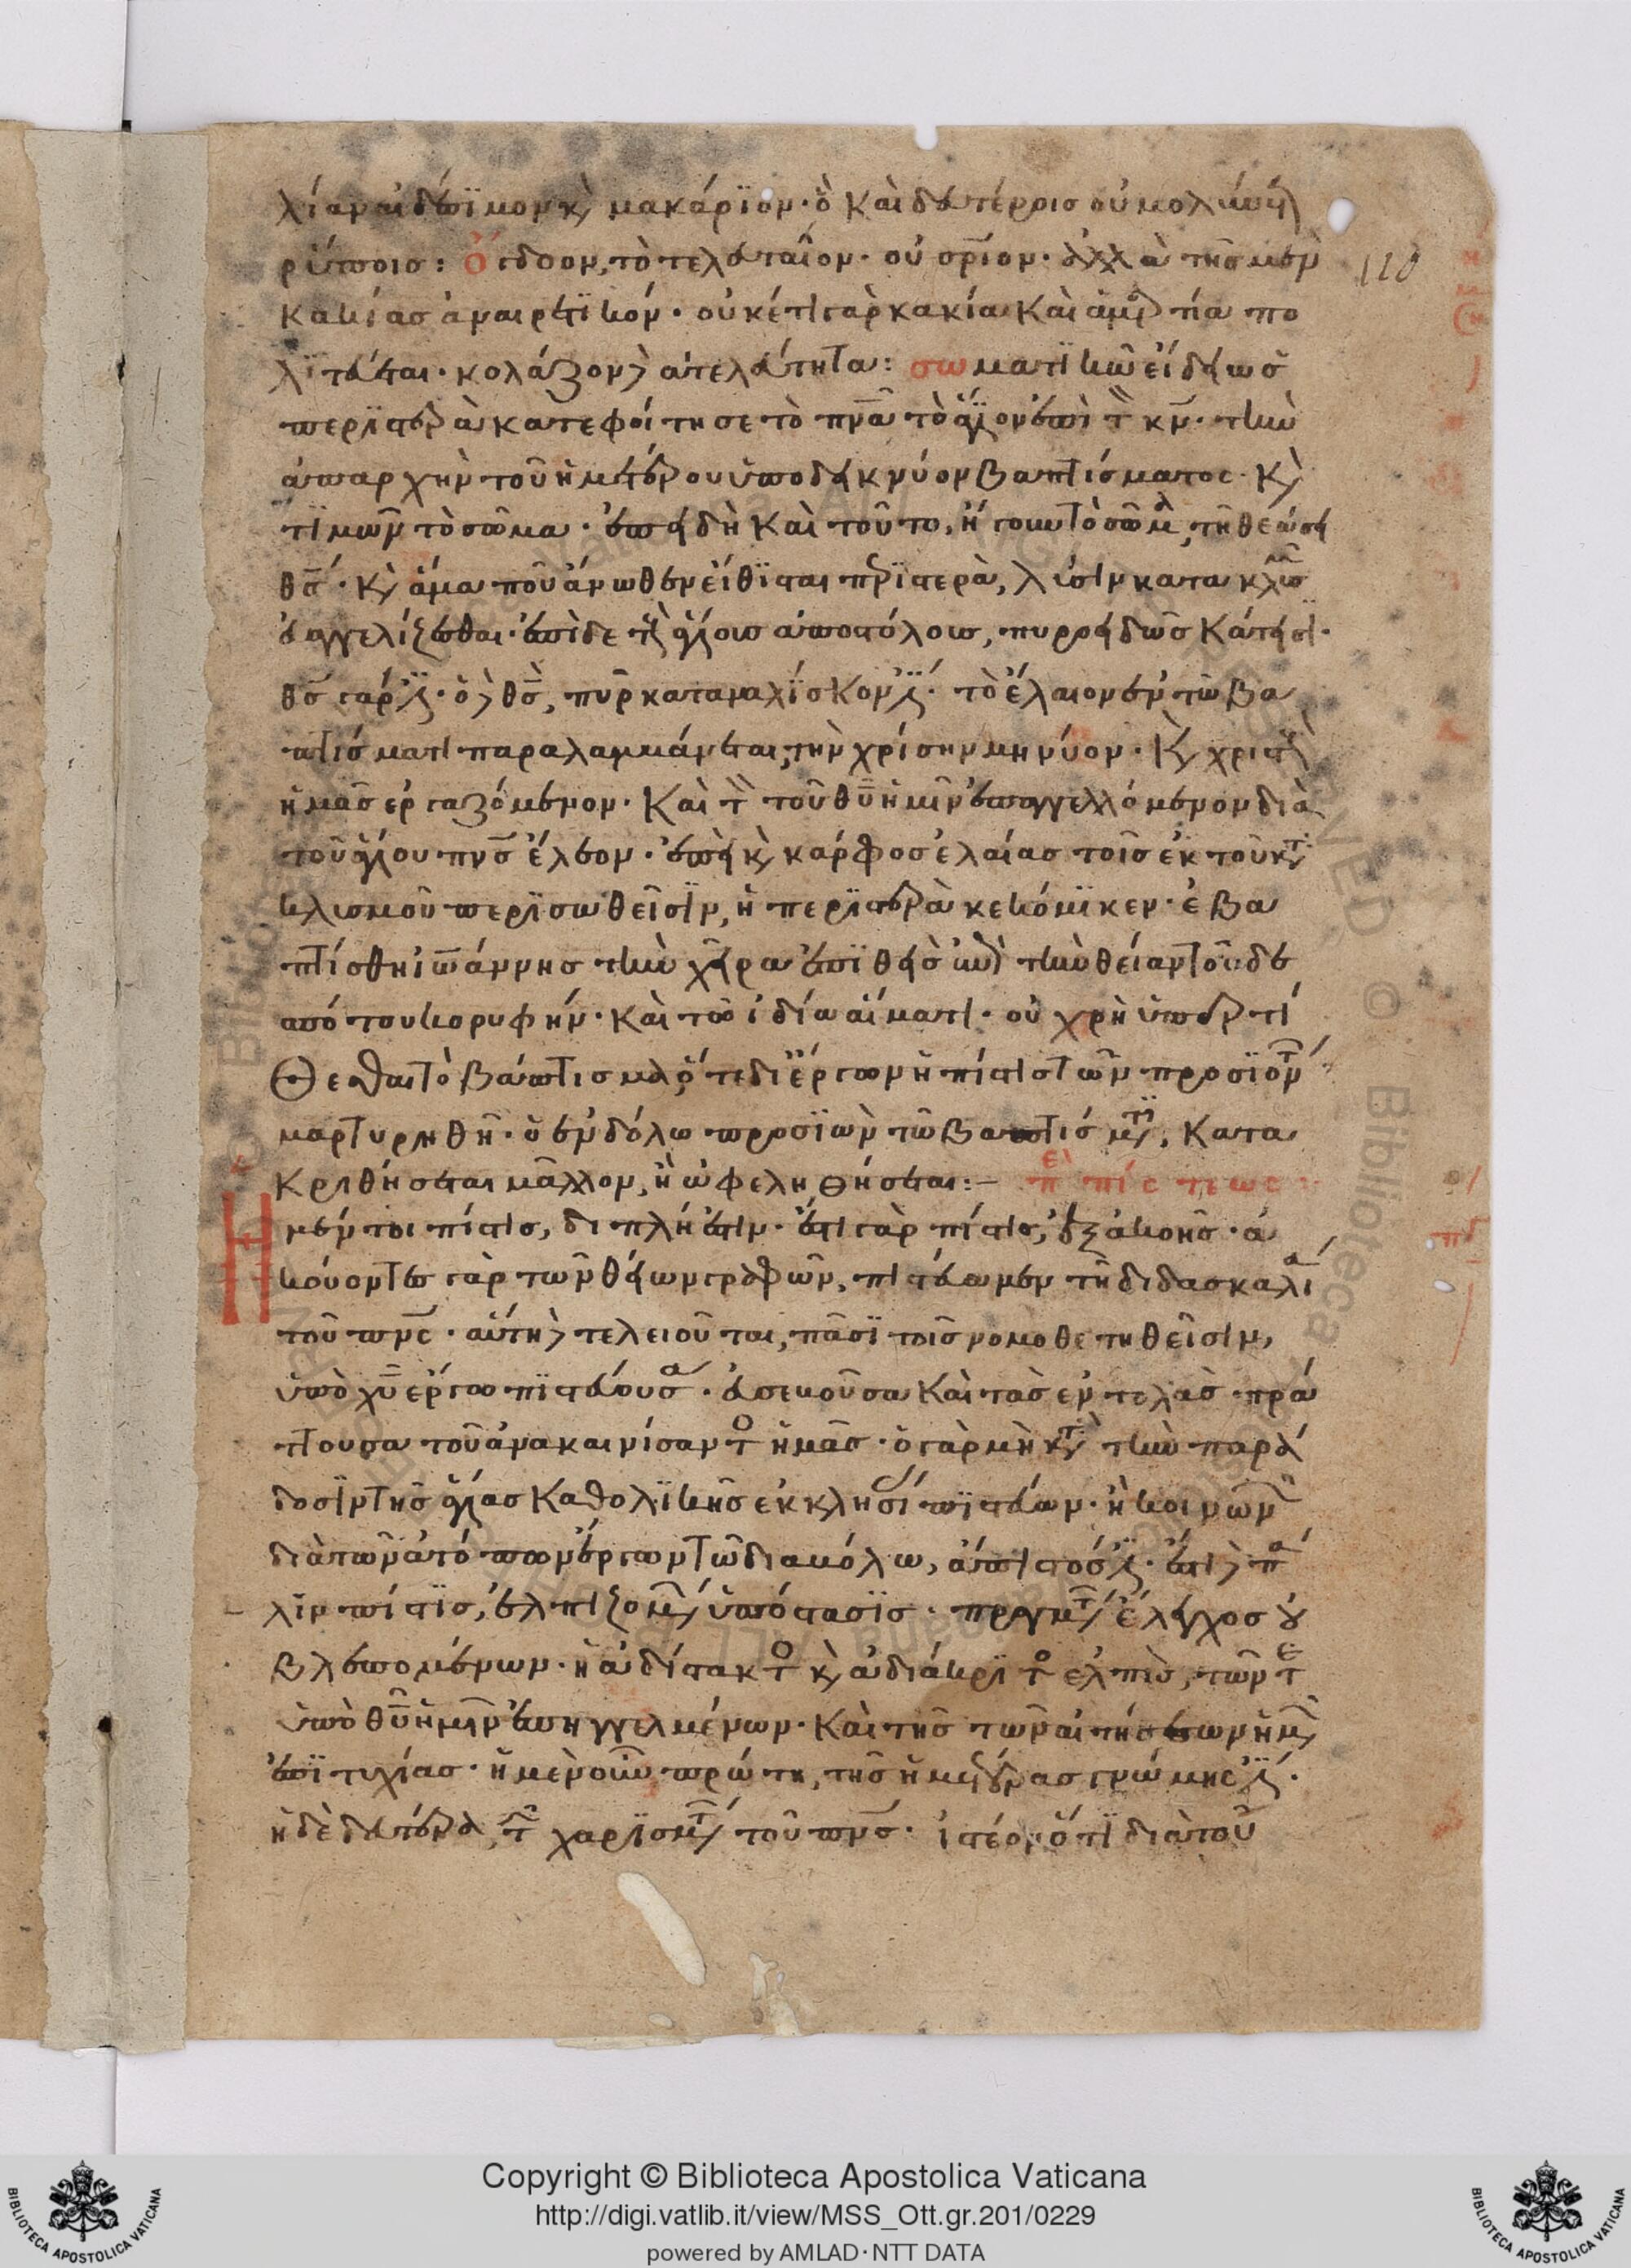 λίαν αἰδέσιμον κ(αὶ) μακάριον· ὃ καὶ δευτέροις οὐ μολύνει
ρύποις: ὄγδοον, τὸ τελευταῖον· οὐ σ(ωτή)ριον· ἀλλὰ τῆς μὲν
κακίας ἀναιρετικόν· οὐκέτι γὰρ κακία καὶ ἁμαρτία πο
λιτεύεται· κολάζον δὲ ἀτελεύτητα: σωματικῶ εἴδει ὡς
περιστερὰ κατεφοίτησε τὸ πνᾶ τὸ ἅγιον ἐπὶ τὸν κν· τὴν
ἀπαρχὴν τοῦ ἡμετέρου ὑποδεικνύον βαπτίσματος· κ(αὶ)
τιμῶν τὸ σῶμα· ἐπειδὴ καὶ τοῦτο, ἤγουν τὸ σῶμα, τῆ θεώσει
θς· κ(αὶ) ἅμα ποῦ ἄνωθεν εἴθισται περιστερὰ, λύσιν κατακλυσμοῦ
εὐαγγελίζεσθαι· ἐπὶ δὲ τοὺς ἁγίοις ἀποστόλοις, πυροειδῶς κάτεισι·
θς γάρ ἐστι· ὁ δὲ θς, πῦρ καταναλίσκον ἐστί· τὸ ἔλαιον ἐν τῶ βα
πτίσματι παραλαμβάνεται, τὴν χρίσην μηνύον· κ(αὶ) χριστοὺς
ἡμᾶς ἐργαζόμενον· καὶ τὸν τοῦ θυ ἡμῖν ἐπαγγελλόμενον διὰ
τοῦ ἁγίου πνς ἔλεον· ἐπεὶ κ(αὶ) κάρφος ἐλαίας τοῖς ἐκ τοῦ κατα
κλισμοῦ περισωθεῖσιν, ἡ περιστερὰ κεκόμικεν· ἐβα
πτίσθη ἰωάννης τὴν χεῖρα ἐπιθεὶς ἐπὶ τὴν θείαν τοῦ δε
σπότου κορυφήν· καὶ τῶ ἰδίω αἵματι· οὐ χρὴ ὑπερτί
θεσθαι τὸ βάπτισμα, ὅτε δι ἔργων ἡ πίστις τῶν προσιόντων
μαρτυρηθῆ· ὁ ἐν δόλω προσιὼν τῶ βαπτίσματι, κατα
κριθήσεται μᾶλλον, ἢ ὠφεληθήσεται:– περὶ πίστεως
Η μέντοι πίστις, διπλή ἐστιν· ἔστι γὰρ πίστις, ἐξ ἀκοῆς· ἀ
κούοντες γὰρ τῶν θείων γραφῶν, πιστεύωμεν τῆ διδασκαλία
τοῦ πνς· αὕτη δὲ τελειοῦται, πᾶσι τοῖς νομοθετηθεῖσιν,
ὑπὸ χυ ἔργω πιστεύουσα· εὐσεβοῦσα καὶ τὰς ἐντολὰς πρά
ττουσα τοῦ ἀνακαινίσαντος ἡμᾶς· ὁ γὰρ μὴ κατὰ τὴν παρά
δοσιν τῆς ἁγίας καθολικῆς ἐκκλησίας πιστεύων· ἢ κοινωνῶν
διὰ τῶν ἀτόπων ἔργων τῶ διαβόλω, ἄπιστός ἐστι· ἔστι δὲ πά
λιν πίστις, ἐλπιζομένων ὑπόστασις· πραγμάτων ἔλεγχος οὐ
βλεπομένων· ἢ ἀδίστακτος κ(αὶ) ἀδιάκριτος ἐλπὶς, τῶν τε
ὑπὸ θυ ἡμῖν ἐπηγγελμένων· καὶ τῆς τῶν αἰτήσεων ἡμῶν
ἐπιτυχίας· ἡ μὲν οὖν πρώτη, τῆς ἡμετέρας γνώμης ἐστί·
ἡ δὲ δευτέρα, τῶν χαρισμάτων τοῦ πνς· ἰστέον ὅτι διὰ τοῦ
110
Copyright © Biblioteca Apostolica Vaticana
http://digi.vatlib.it/view/MSS_Ott.gr.201/0229
powered by AMLAD·NTT DATA
BIBLIOTECA APOSTOLICA VATICANA
BIBLIOTECA APOSTOLICA VATICANA